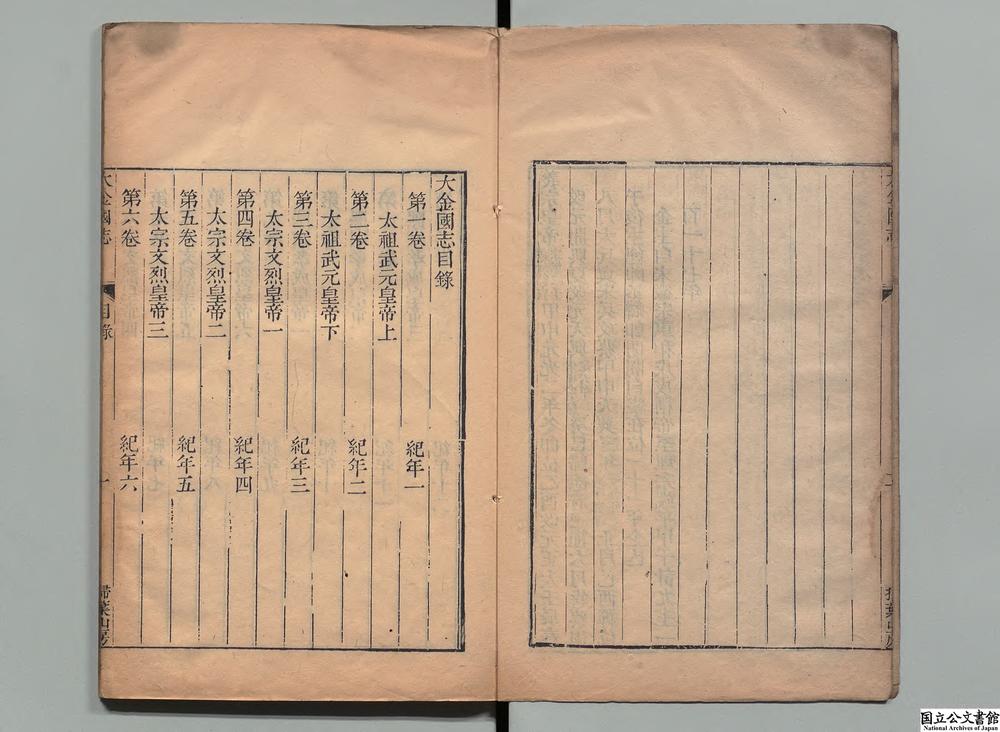 大金國志目錄
第一卷 紀年一
太祖武元皇帝上
第二卷 紀年二
太祖武元皇帝下
第三卷 紀年三
太宗文烈皇帝一
第四卷 紀年四
太宗文烈皇帝二
第五卷 紀年五
太宗文烈皇帝三
第六卷 紀年六
大金國志 目錄 一 掃葉山房
国立公文書館
National Archives of Japan